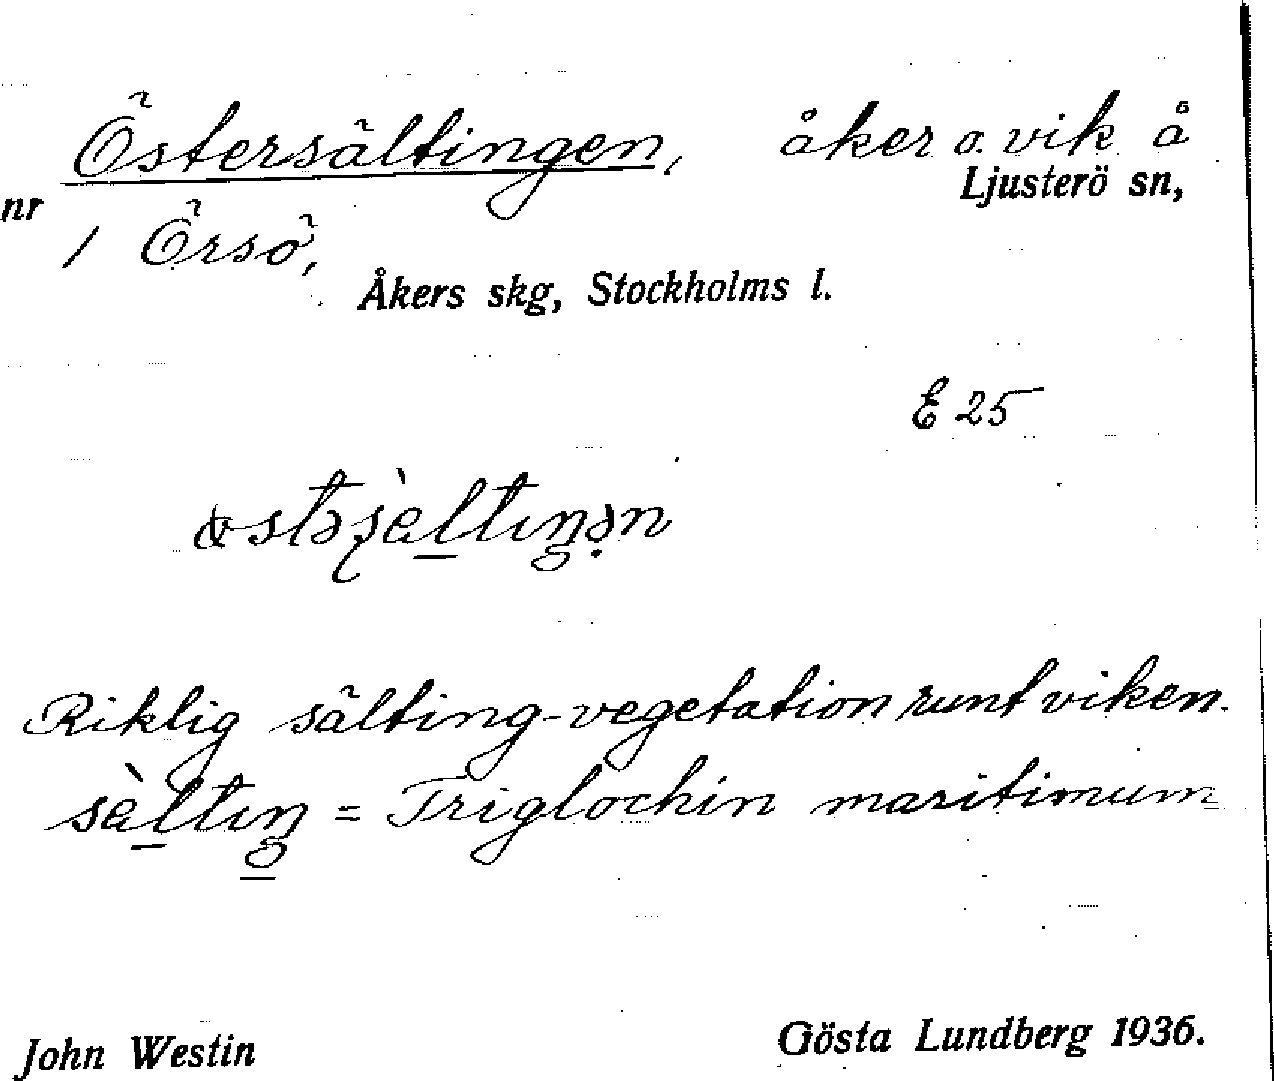 Östersältingen, åker o. vik å
Ljusterö sn,
nr 1 Örsö,
Åkers skg, Stockholms l.
E 25
Riklig sälting-vegetation runt viken.
sàltıŋ = Triglochin maritimum
John Westin Gösta Lundberg 1936.